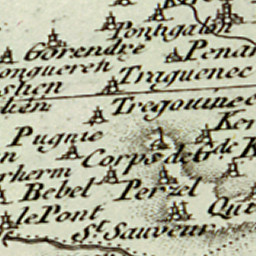 Ponhgalon
Gorendre
Penan
ongueren
Traguenec
shen
Tregouinec
Ker
Pugnie
Corps de tr. de K
n
rherm
Bebel
Perzel
le Pont
Qui
St. Sauveur